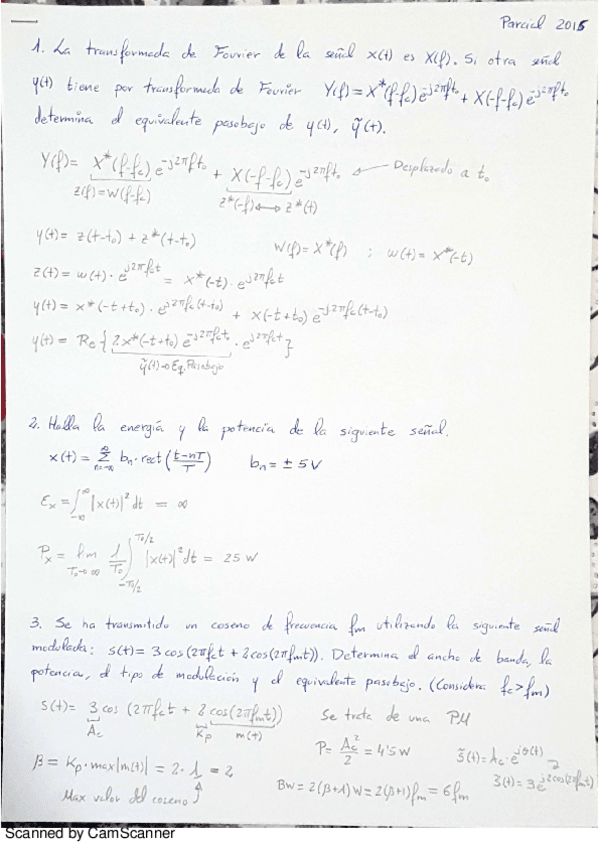 Parcial 2015
1. La transformada de Fourier de la señal x(t) es X(f). Si otra señal
y(t) tiene por transformada de Fourier Y(f)=X*(f-fc)e^-j2πft₀ + X(-f-fc)e^-j2πft₀
determina el equivalente pasobajo de y(t), ỹ(t).
Y(f)= X*(f-fc)e^-j2πft₀ + X(-f-fc)e^-j2πft₀ ← Desplazado a t₀
Z(f)=W(f-fc) Z*(-f)↔z*(t)
y(t)= z(t-t₀) + z*(t-t₀) W(f)= X*(f) ; w(t)= x*(-t)
z(t)= w(t)·e^j2πfct = x*(-t)·e^j2πfct
y(t)= x*(-t+t₀)·e^j2πfc(t-t₀) + x(-t+t₀)e^-j2πfc(t-t₀)
y(t)= Re{2x*(-t+t₀)e^-j2πfct₀·e^j2πfct}
ỹ(t)→Eq. Pasobajo
2. Halla la energía y la potencia de la siguiente señal.
x(t)= ∑_{n=-∞}^{∞} bn·rect((t-nT)/T) bn= ±5V
Ex = ∫_{-∞}^{∞} |x(t)|² dt = ∞
Px = lim_{T₀→∞} 1/T₀ ∫_{-T₀/2}^{T₀/2} |x(t)|² dt = 25 W
3. Se ha transmitido un coseno de frecuencia fm utilizando la siguiente señal
modulada: s(t)= 3cos(2πfct + 2cos(2πfmt)). Determina el ancho de banda, la
potencia, el tipo de modulación y el equivalente pasobajo. (Considera fc>fm)
S(t)= 3 cos (2πfct + 2 cos(2πfmt)) Se trata de una PM
Ac Kp m(t)
P= Ac²/2 = 4'5W s̃(t)= Ac·e^jθ(t)
β = Kp·max|m(t)| = 2·1 = 2 s̃(t)= 3e^j2cos(2πfmt)
BW = 2(β+1)W = 2(β+1)fm = 6fm
Max valor del coseno
Scanned by CamScanner